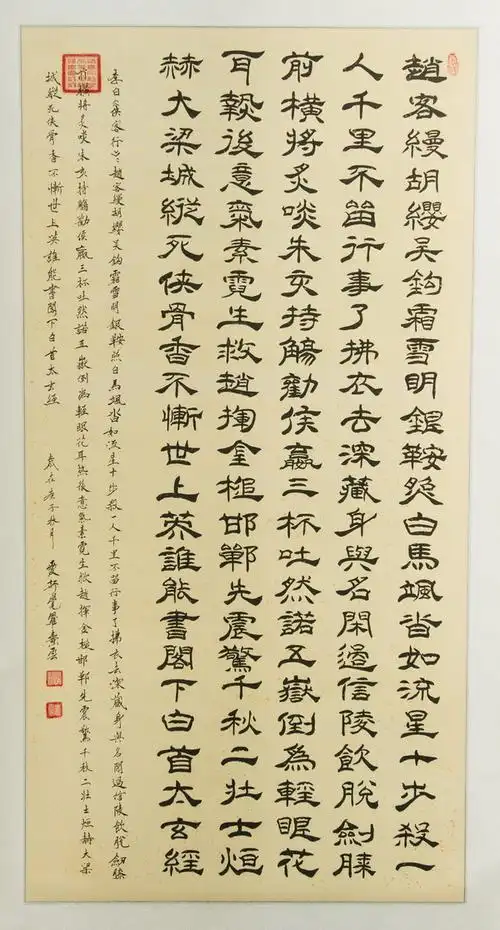 趙客縵胡纓吳鉤霜雪明銀鞍照白馬颯沓如流星十步殺一
人千里不留行事了拂衣去深藏身與名閑過信陵飲脫劍膝
前橫將炙啖朱亥持觴勸侯嬴三杯吐然諾五嶽倒為輕眼花
耳熱後意氣素霓生救趙揮金槌邯鄲先震驚千秋二壯士烜
赫大梁城縱死俠骨香不慚世上英誰能書閣下白首太玄經
李白俠客行趙客縵胡纓吳鉤霜雪明銀鞍照白馬颯沓如流星十步殺一人千里不留行事了拂衣去深藏身與名閑過信陵飲脫劍膝
前橫將炙啖朱亥持觴勸侯嬴三杯吐然諾五嶽倒為輕眼花耳熱後意氣素霓生救趙揮金槌邯鄲先震驚千秋二壯士烜赫大梁
城縱死俠骨香不慚世上英誰能書閣下白首太玄經 歲在庚子秋月